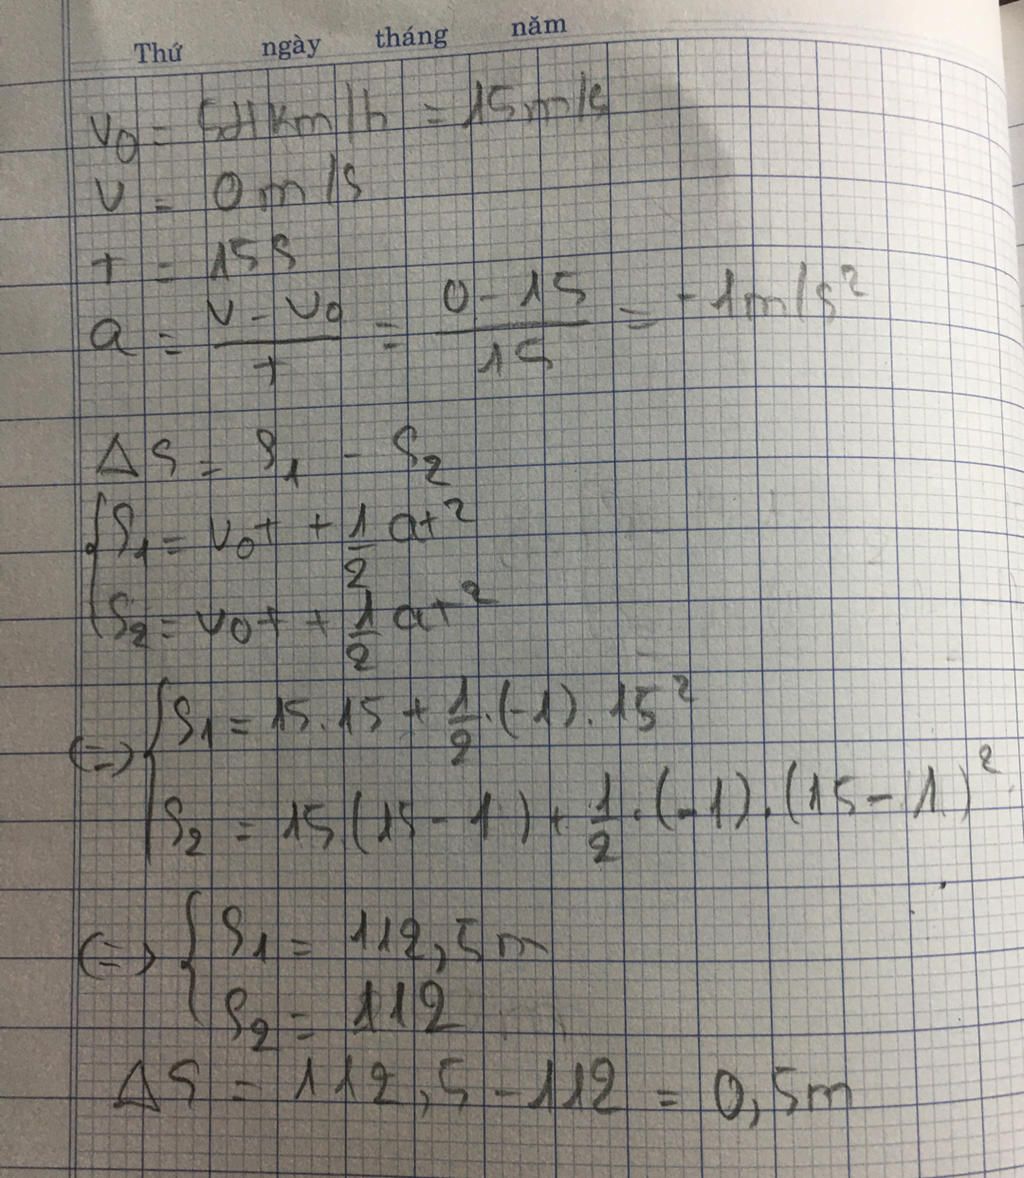 Thứ ngày tháng năm
v₀ = 54km/h = 15m/s
v = 0m/s
t = 15s
a = \frac{v - v₀}{t} = \frac{0 - 15}{15} = -1m/s²
ΔS = S₁ - S₂
{S₁ = v₀t + \frac{1}{2}at²
{S₂ = v₀t + \frac{1}{2}at²
(=) {S₁ = 15.15 + \frac{1}{2}.(-1).15²
{S₂ = 15(15 - 1) + \frac{1}{2}.(-1).(15 - 1)²
(=) {S₁ = 112,5m
{S₂ = 112
ΔS = 112,5 - 112 = 0,5m